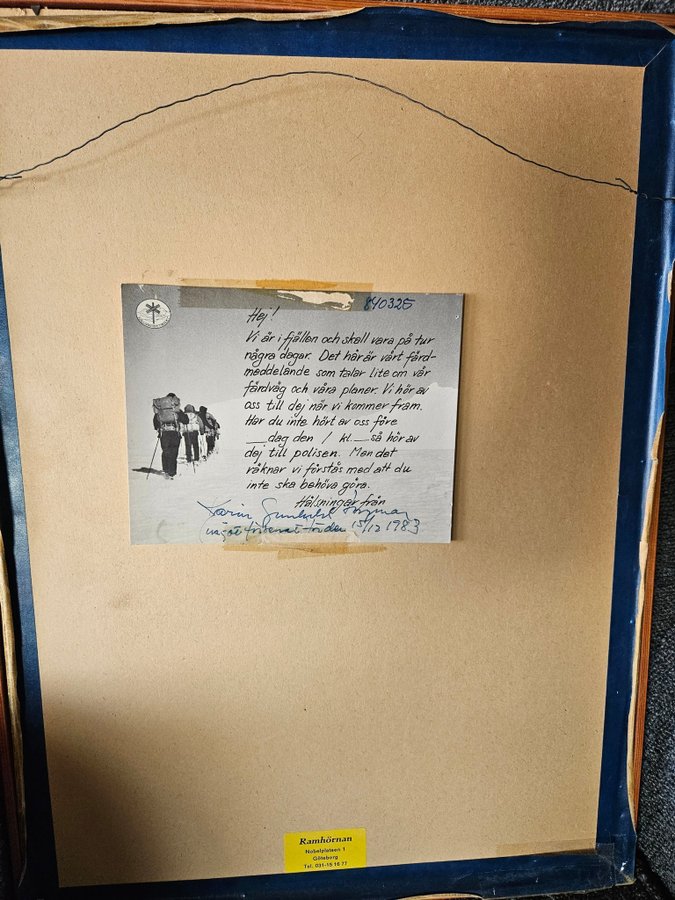 840325
Hej!
Vi är i fjällen och skall vara på tur
några dagar. Det här är vårt färd-
meddelande som talar lite om vår
färdväg och våra planer. Vi hör av
oss till dej när vi kommer fram.
Har du inte hört av oss före
__dag den / kl.__så hör av
dej till polisen. Men det
räknar vi förstås med att du
inte ska behöva göra.
Hälsningar från
15/12 1983
Ramhörnan
Nobelplatsen 1
Göteborg
Tel. 031-15 16 77